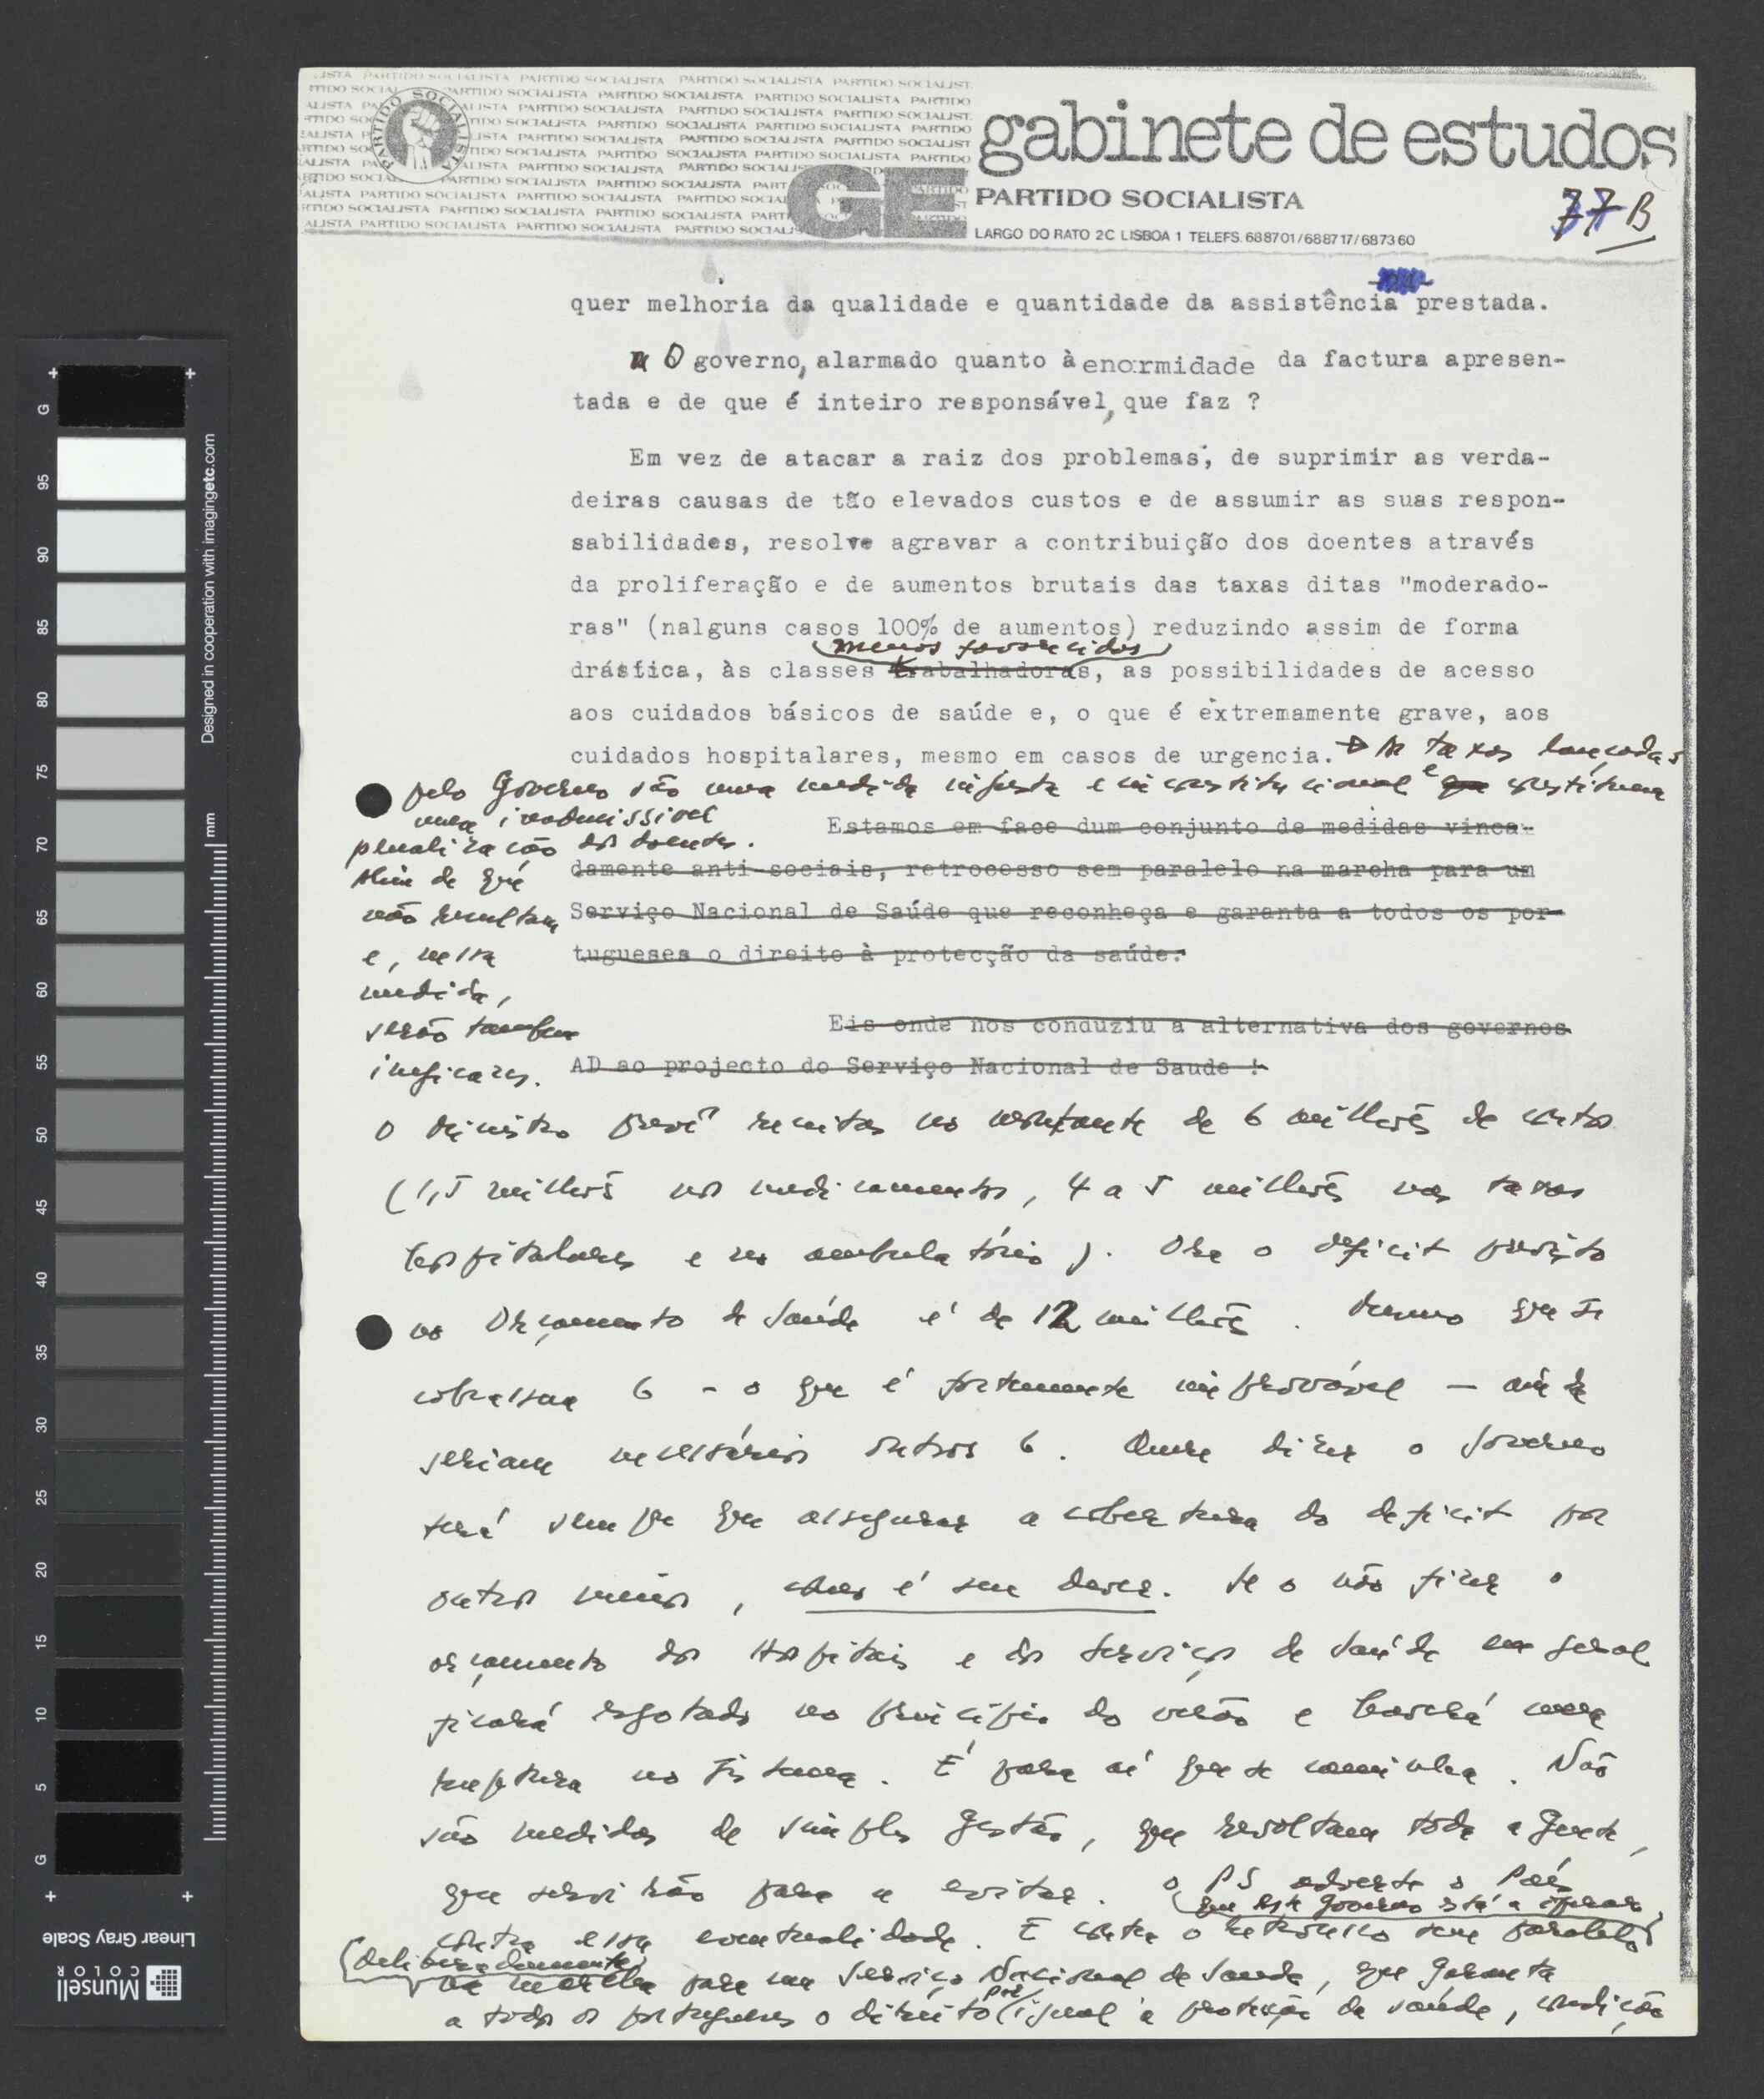 gabinete de estudos
GE PARTIDO SOCIALISTA
LARGO DO RATO 2C LISBOA 1 TELEFS. 688701/688717/687360
77 B
quer melhoria da qualidade e quantidade da assistência prestada.
O governo, alarmado quanto à enormidade da factura apresen-
tada e de que é inteiro responsável, que faz ?
Em vez de atacar a raiz dos problemas, de suprimir as verda-
deiras causas de tão elevados custos e de assumir as suas respon-
sabilidades, resolve agravar a contribuição dos doentes através
da proliferação e de aumentos brutais das taxas ditas "moderado-
ras" (nalguns casos 100% de aumentos) reduzindo assim de forma
menos favorecidas
drástica, às classes trabalhadoras, as possibilidades de acesso
aos cuidados básicos de saúde e, o que é extremamente grave, aos
cuidados hospitalares, mesmo em casos de urgencia. As taxas lançadas
pelo Governo são uma medida injusta e inconstitucional e constituem
uma inadmissivel
penalização dos doentes.
Além de que
não resultam
e, nessa
medida,
serão também
ineficazes.
Estamos em face dum conjunto de medidas vinca-
damente anti-sociais, retrocesso sem paralelo na marcha para um
Serviço Nacional de Saúde que reconheça e garanta a todos os por-
tugueses o direito à protecção da saúde.
Eis onde nos conduziu a alternativa dos governos
AD ao projecto do Serviço Nacional de Saude !
O Ministro prevê receitas no montante de 6 milhões de contos
(1,5 milhões nos medicamentos, 4 a 5 milhões nas taxas
hospitalares e no ambulatório). Ora o deficit previsto
no Orçamento de Saúde é de 12 milhões. Mesmo que se
cobrassem 6 - o que é fortemente improvável - ainda
seriam necessários outros 6. Quer dizer o Governo
terá sempre que assegurar a cobertura do deficit por
outros meios, como é seu dever. Se o não fizer o
orçamento dos Hospitais e dos Serviços de Saúde em geral
ficará esgotado no princípio do verão e haverá uma
ruptura no sistema. É para aí que se caminha. Não
são medidas de simples gestão, que revoltam toda a gente,
que servirão para a evitar. O PS adverte o País
que este governo está a operar
contra essa eventualidade. E contra o retrocesso sem paralelo
deliberadamente
na marcha para um Serviço Nacional de Saúde, que garanta
a todos os portugueses o direito por igual à protecção da saúde, condição